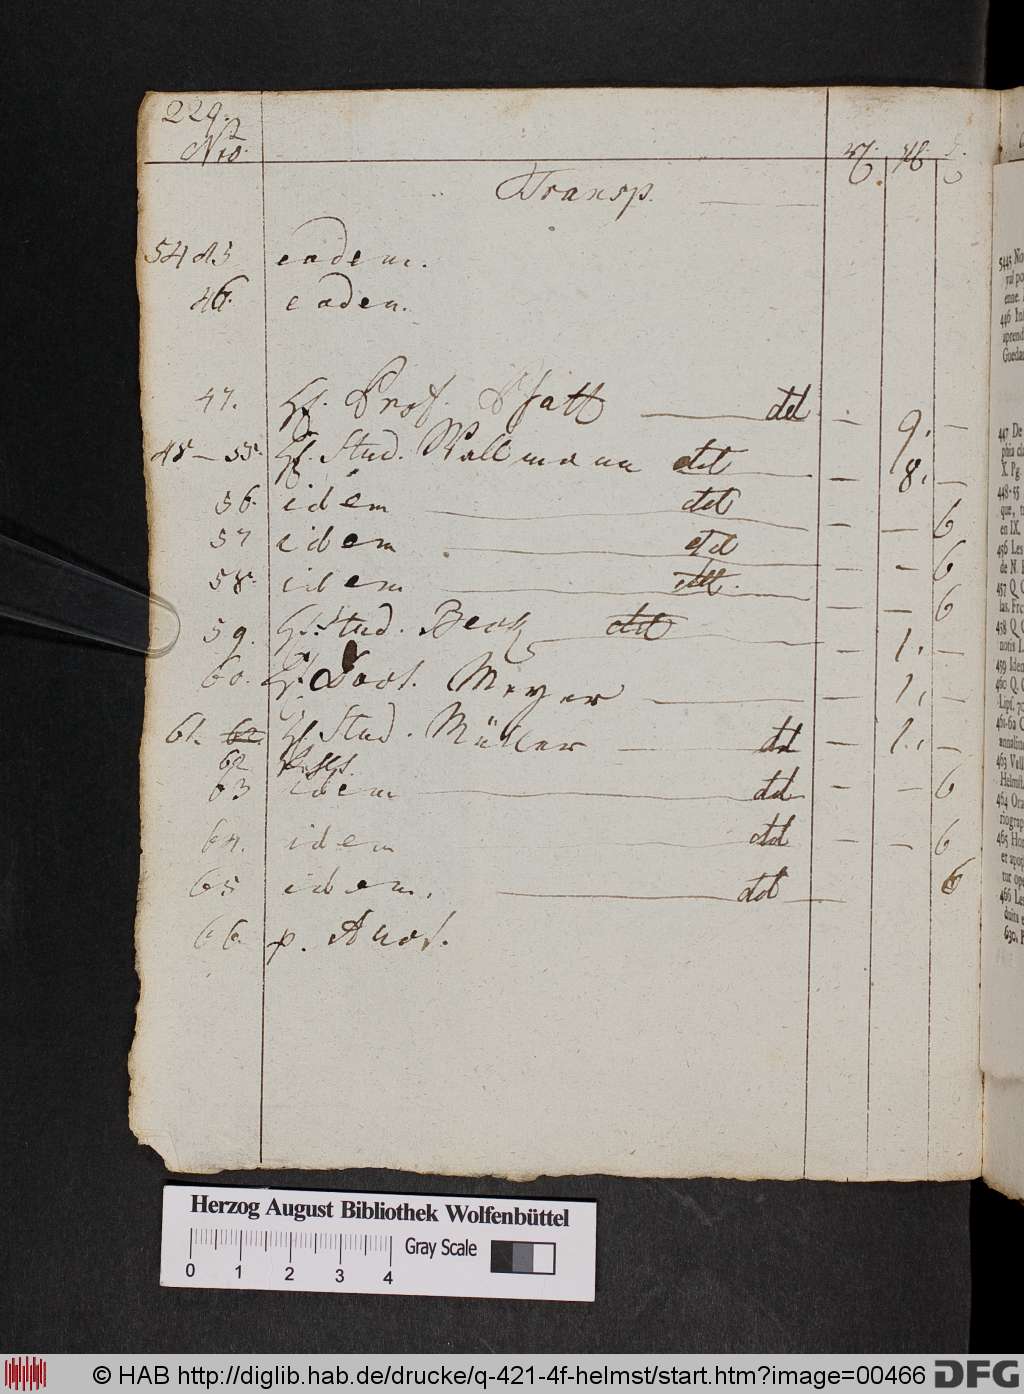 229.
Nro.
Transp.
5445 eadem.
46. eadem.
47. H. Prof. Pfaff dd — 9. —
48–55. H. Stud. Wallmann dd — 8. —
56. idem dd — — 6
57 idem dd — — 6
58. idem dd — — 6
59. H. Stud. Beck dd — 1. —
60. H. Doct. Meyer — 1. —
61. 62. H. Stud. Müller dd — 1. —
62
63 idem dd — — 6
64. idem dd — — 6
65 idem. dd 6
66. p. Auct.
5445 No
enne.
446 In
Goeda
447 De
phia cl
X. Pg
448-55
que, t
en IX.
456 Les
de N.
457 Q. C
las. Fr
458 Q. C
notis I
459 Idem
460 Q. C
Lipf. 7
461-62 C
463 Vell
Helmst
464 Ora
465 Ho
er apop
tur ope
466 Les
duits e
Herzog August Bibliothek Wolfenbüttel
0 1 2 3 4
Gray Scale
© HAB http://diglib.hab.de/drucke/q-421-4f-helmst/start.htm?image=00466
DFG